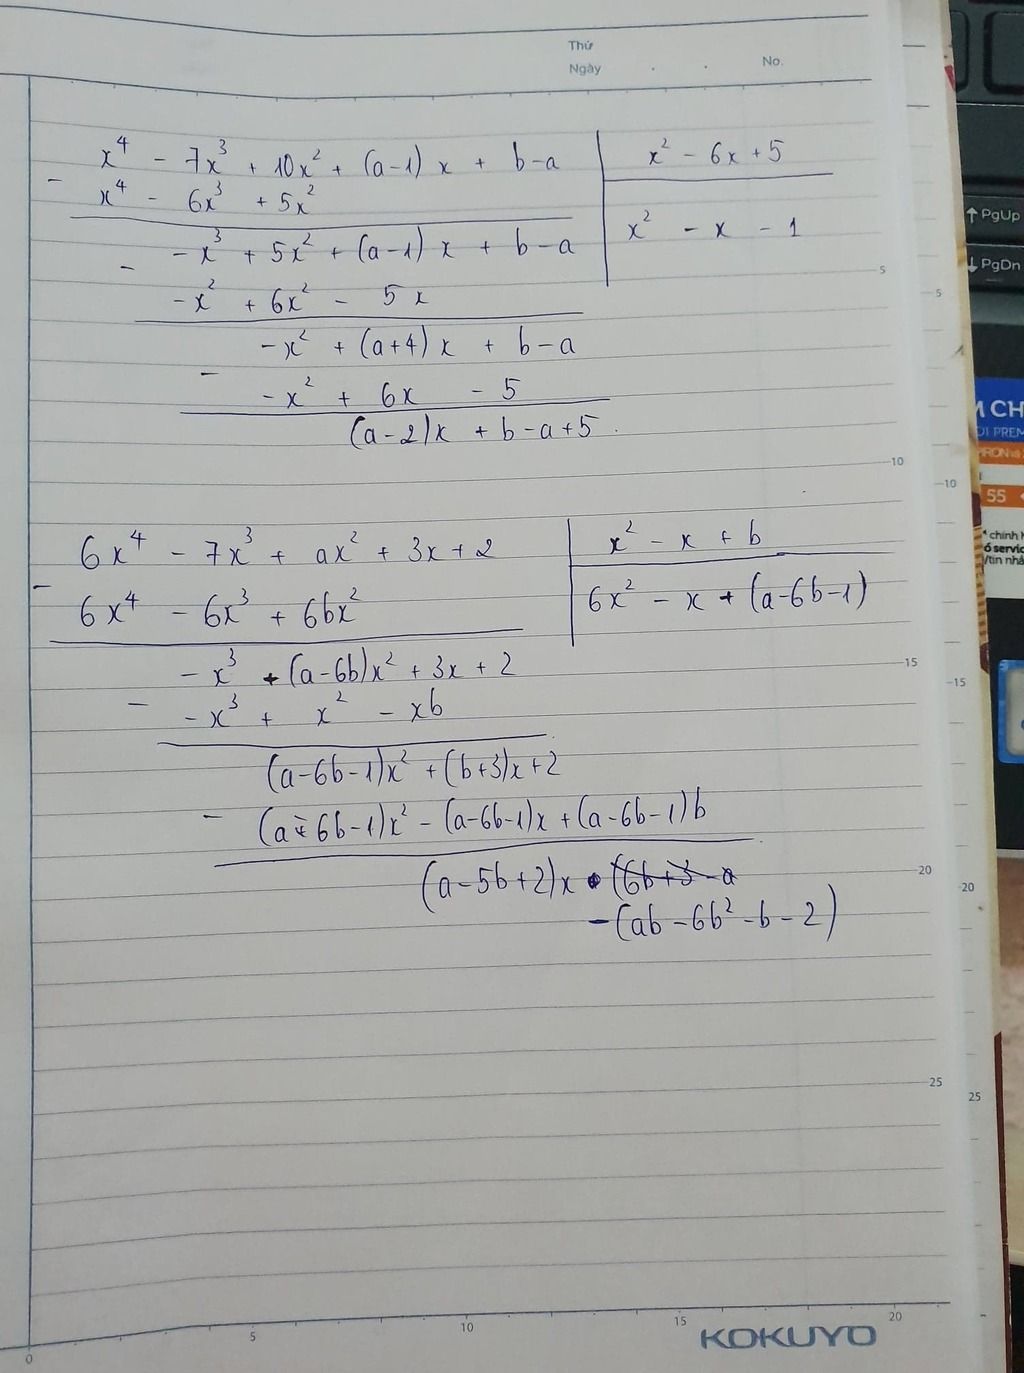 Thứ
Ngày . . No.
x⁴ - 7x³ + 10x² + (a-1) x + b-a | x² - 6x + 5
- x⁴ - 6x³ + 5x² | x² - x - 1
-x³ + 5x² + (a-1) x + b-a
- -x² + 6x² - 5x
-x² + (a+4) x + b-a
- -x² + 6x - 5
(a-2)x + b-a+5.
6x⁴ - 7x³ + ax² + 3x + 2 | x² - x + b
- 6x⁴ - 6x³ + 6bx² | 6x² - x + (a-6b-1)
-x³ + (a-6b)x² + 3x + 2
- -x³ + x² - xb
(a-6b-1)x² + (b+3)x+2
- (a-6b-1)x² - (a-6b-1)x + (a-6b-1)b
(a-5b+2)x (6b+3-a
-(ab-6b²-b-2)
0 5 10 15 20
5
10
15
20
25
5
10
15
20
25
KOKUYO
↑ PgUp
↓ PgDn
M CH
55
chính